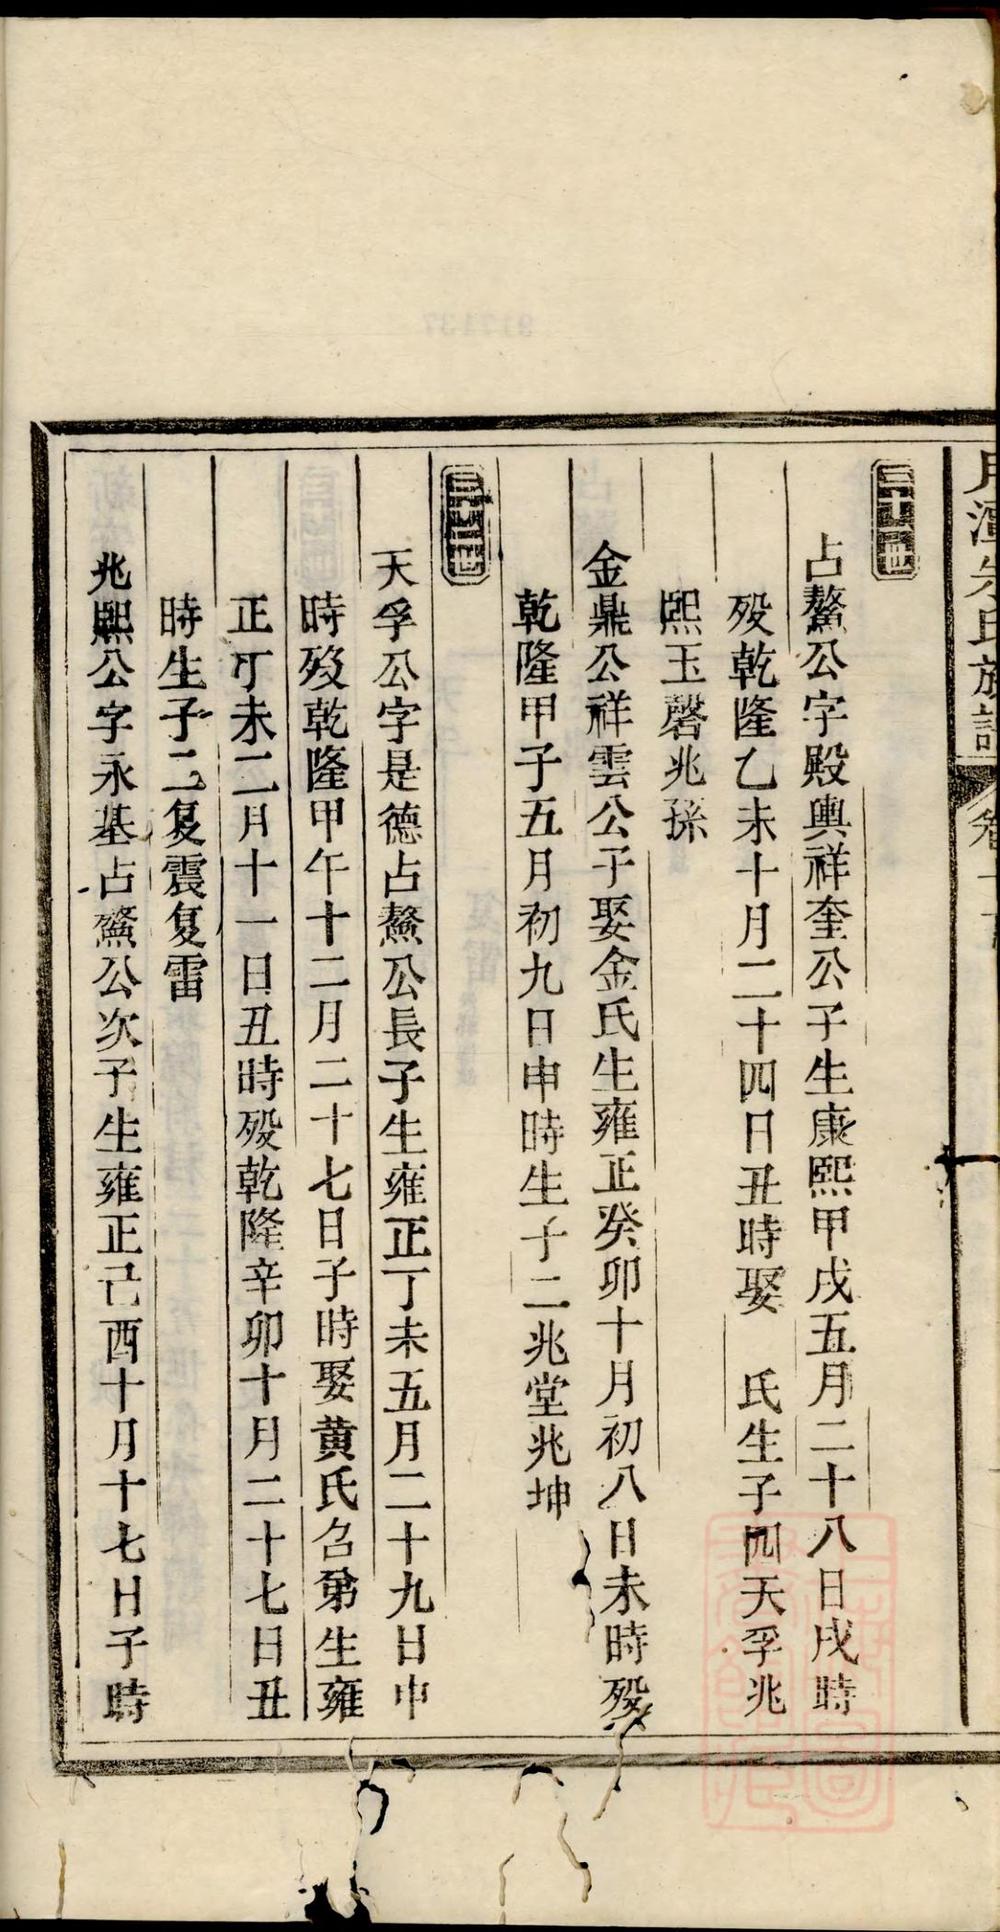 月潭朱氏族譜
占鰲公字殿輿祥奎公子生康熙甲戌五月二十八日戌時
歿乾隆乙未十月二十四日丑時娶　氏生子四天孚兆
熙玉磬兆孫
金鼎公祥雲公子娶金氏生雍正癸卯十月初八日未時歿
乾隆甲子五月初九日申時生子二兆堂兆坤
天孚公字是德占鰲公長子生雍正丁未五月二十九日申
時歿乾隆甲午十二月二十七日子時娶黄氏名弟生雍
正丁未二月十一日丑時歿乾隆辛卯十月二十七日丑
時生子二复震复雷
兆熙公字永基占鰲公次子生雍正己酉十月十七日子時